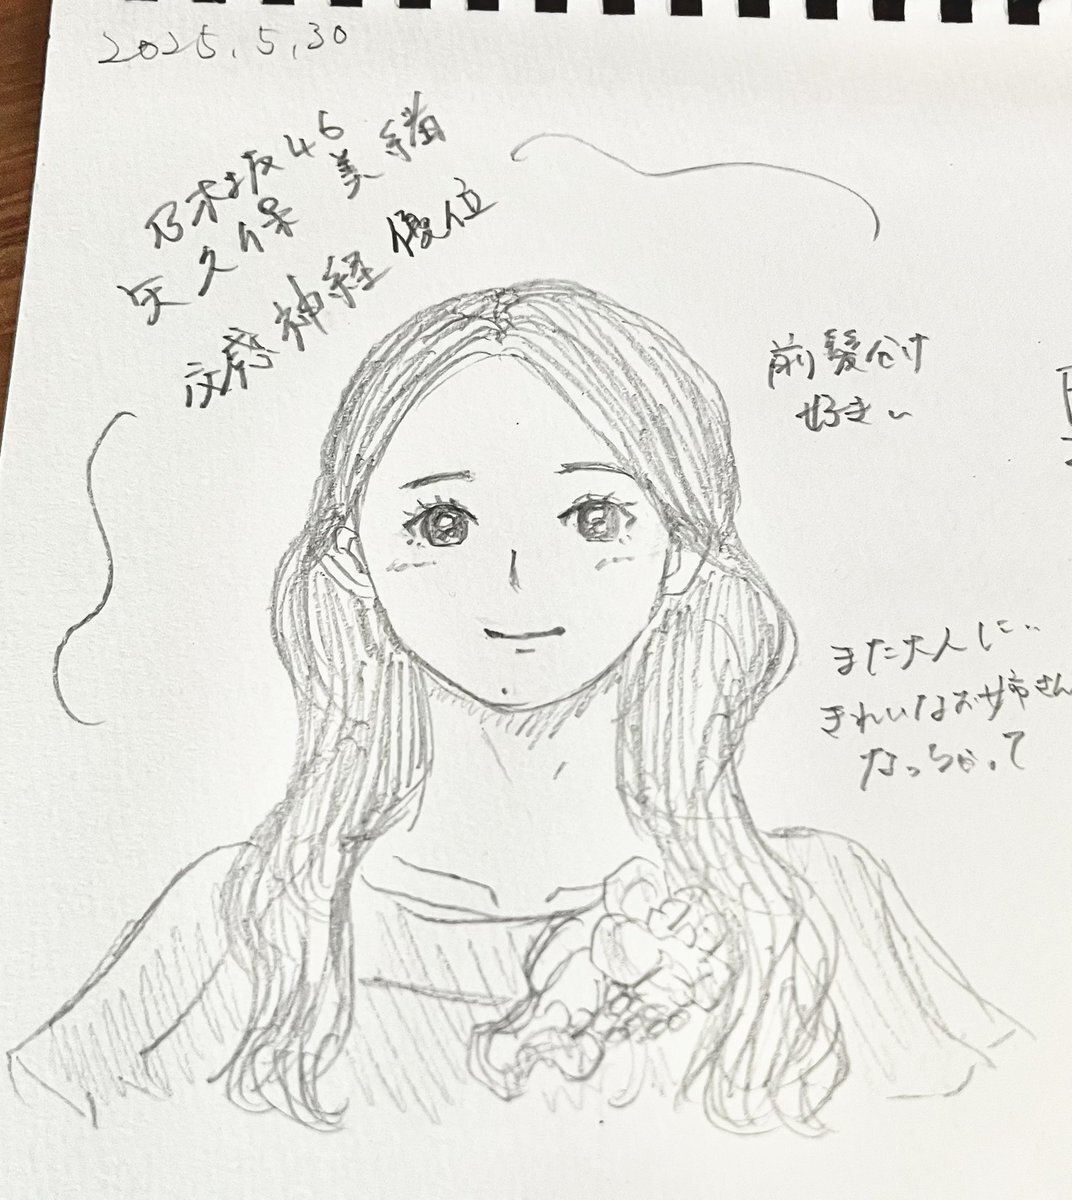 2025.5.30
乃木坂46
矢久保美緒
交感神経優位
前髪分け
好き〜
また大人に…
きれいなお姉さん
なっちゃって